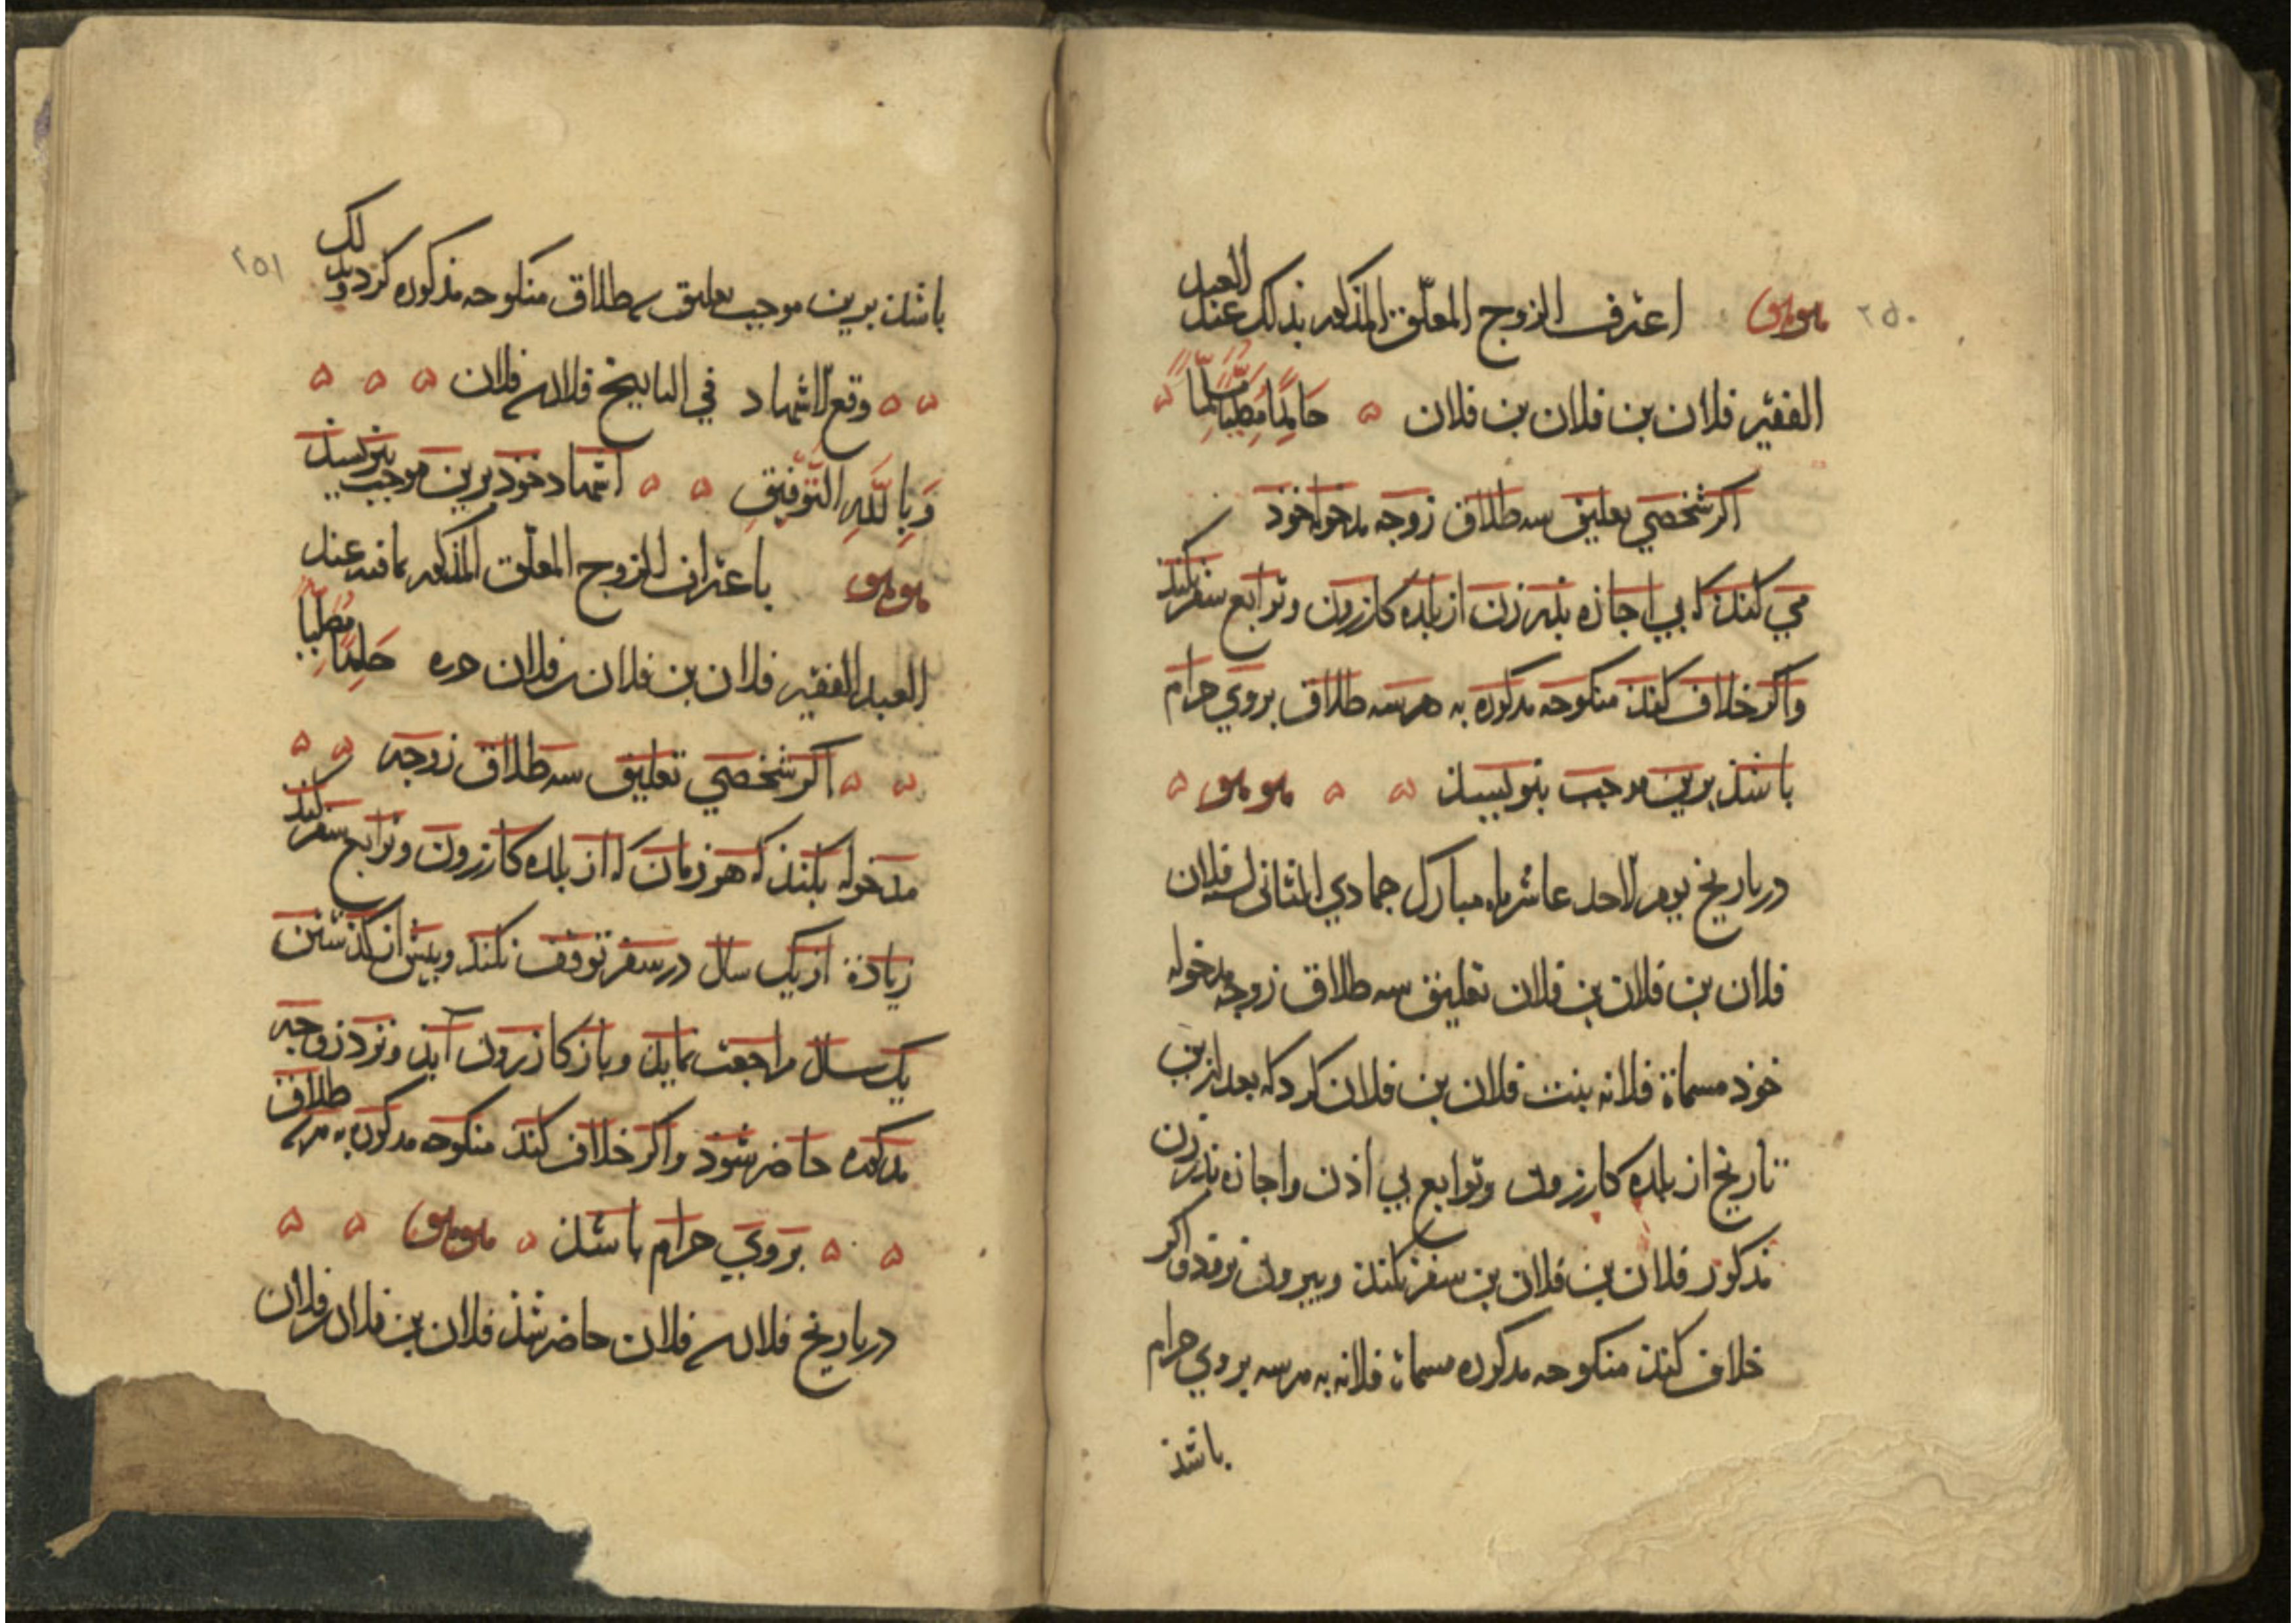 ٢٥٠
هو هو اعترف الزوج المعلق المذكور بذلك عند العبد
الفقير فلان بن فلان بن فلان حامدا مصليا مسلما
اكر شخصي تعليق سه طلاق زوجه مدخوله خود
مي كند كه بي اجازه بدر زن از بلده كازرون وتوابع سفر نكند
واكر خلاف كند منكوحه مذكوره به هر سه طلاق بروي حرام
باشد برين موجب بنويسند هو هو
در تاريخ يوم الاحد عاشر ماه مبارك جمادي الثاني لسنه فلان
فلان بن فلان بن فلان تعليق سه طلاق زوجه مدخوله
خود مسماة فلانه بنت فلان بن فلان كرد كه بعد ازين
تاريخ از بلده كازرون وتوابع بي اذن واجازه بدر زن
مذكور فلان بن فلان بن سفر نكند وبيرون نرود واكر
خلاف كند منكوحه مذكوره مسماة فلانه به هر سه بروي حرام
باشد
٢٥١
باشد برين موجب تعليق سه طلاق منكوحه مذكوره كرد وبذلك
وقع الاشهاد في التاريخ فلان سنه فلان
وَبِاللَّهِ التَّوْفِيقِ اشهاد خود برين موجب بنويسد
هو هو باعتراف الزوج المعلق المذكور بما فيه عند
العبد الفقير فلان بن فلان بن فلان حرره حامدا مصليا
اكر شخصي تعليق سه طلاق زوجه
مدخوله بكند كه هر زمان كه از بلده كازرون وتوابع سفر كند
زيادة از يك سال در سفر توقف نكند وبيش از كذشتن
يك سال مراجعت نمايد وباز كازرون آيد ونزد زوجه
مذكوره حاضر شود واكر خلاف كند منكوحه مذكوره به هر سه طلاق
بروي حرام باشد هو هو
در تاريخ فلان سنه فلان حاضر شد فلان بن فلان بن فلان